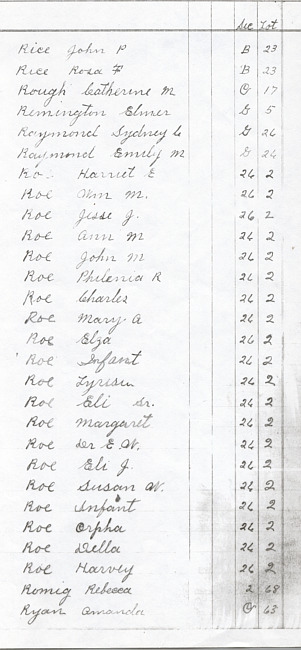 Sec Lot
Rice John P B 23
Rice Rosa F B 23
Rough Catherine M O 17
Remington Elmer G 5
Raymond Sydney G 26
Raymond Emily M G 26
Roe Harriet E 26 2
Roe Wm M. 26 2
Roe Jesse J. 26 2
Roe Ann M 26 2
Roe John M 26 2
Roe Philenia R 26 2
Roe Charles 26 2
Roe Mary A 26 2
Roe Elza 26 2
Roe Infant 26 2
Roe 26 2
Roe Eli Sr. 26 2
Roe Margaret 26 2
Roe Dr E. W. 26 2
Roe Eli J. 26 2
Roe Susan W. 26 2
Roe Infant 26 2
Roe Orpha 26 2
Roe Della 26 2
Roe Harvey 26 2
Romig Rebecca 2 68
Ryan Amanda O 63